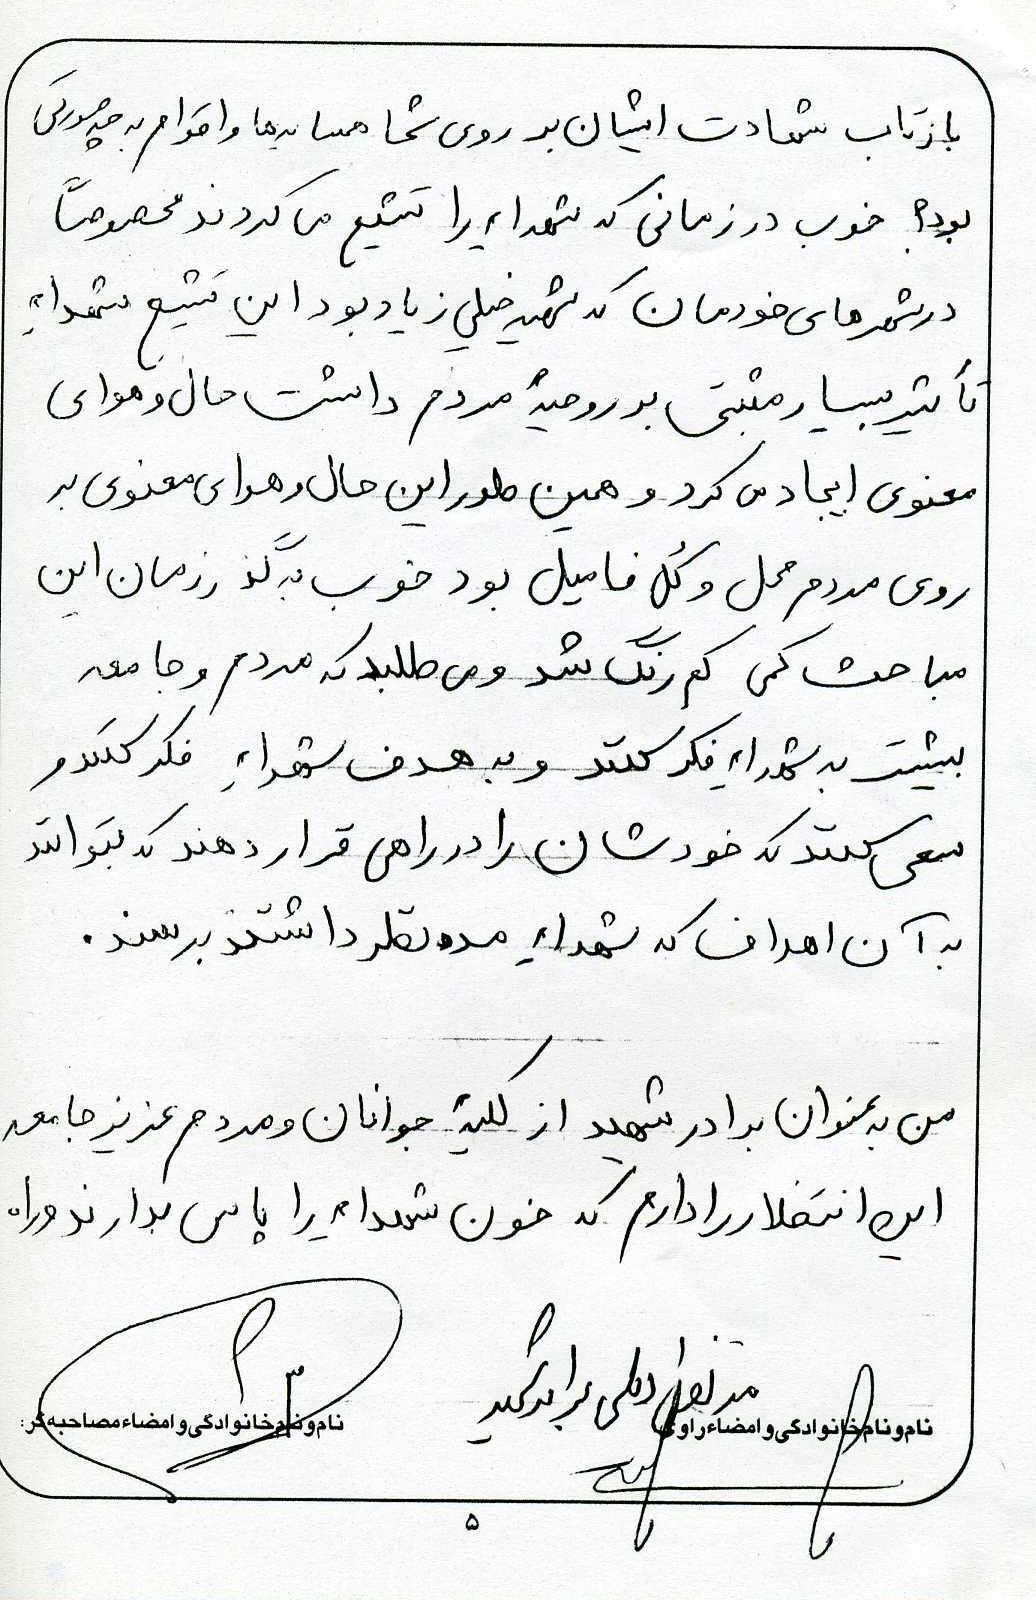 بازتاب شهادت ایشان بر روی شما همسایه‌ها و اقوام به چه صورتی
بود؟ خوب در زمانی که شهداء را تشیع می کردند مخصوصاً
در شهرهای خودمان که شهید خیلی زیاد بود این تشیع شهداء
تأثیر بسیار مثبتی بر روحیهٔ مردم داشت حال و هوای
معنوی ایجاد می کرد و همین طور این حال و هوای معنوی به
روی مردم محل و کُل فامیل بود خوب به گذر زمان این
مباحث کمی کم رنگ شد و می طلبد که مردم و جامعه
بیشتر به شهداء فکر کنند و به هدف شهداء فکر کنند و
سعی کنند که خودشان را در راهی قرار دهند که بتوانند
به آن اهداف که شهداء مد نظر داشتند برسند.
من به عنوان برادر شهید از کلیهٔ جوانان و مردم عزیز جامعه
این انتظار را دارم که خون شهداء را پاس بدارند و راه
برادر شهید
نام و نام خانوادگی و امضاء راوی
نام و نام خانوادگی و امضاء مصاحبه گر:
۵